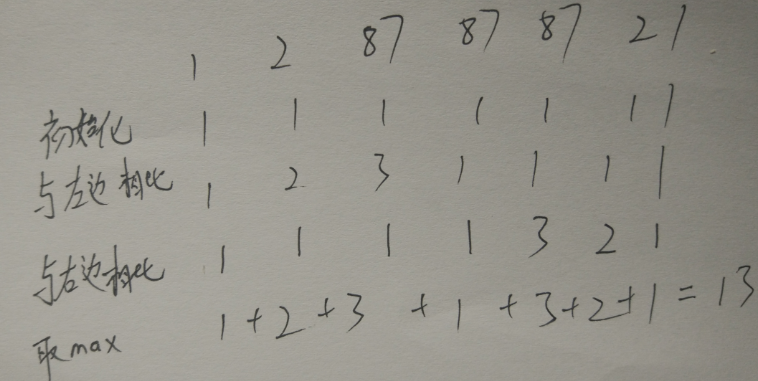 1 2 87 87 87 2 1
初始化 1 1 1 1 1 1 1
与左边相比 1 2 3 1 1 1 1
与右边相比 1 1 1 1 3 2 1
取max 1+2+3+1+3+2+1=13